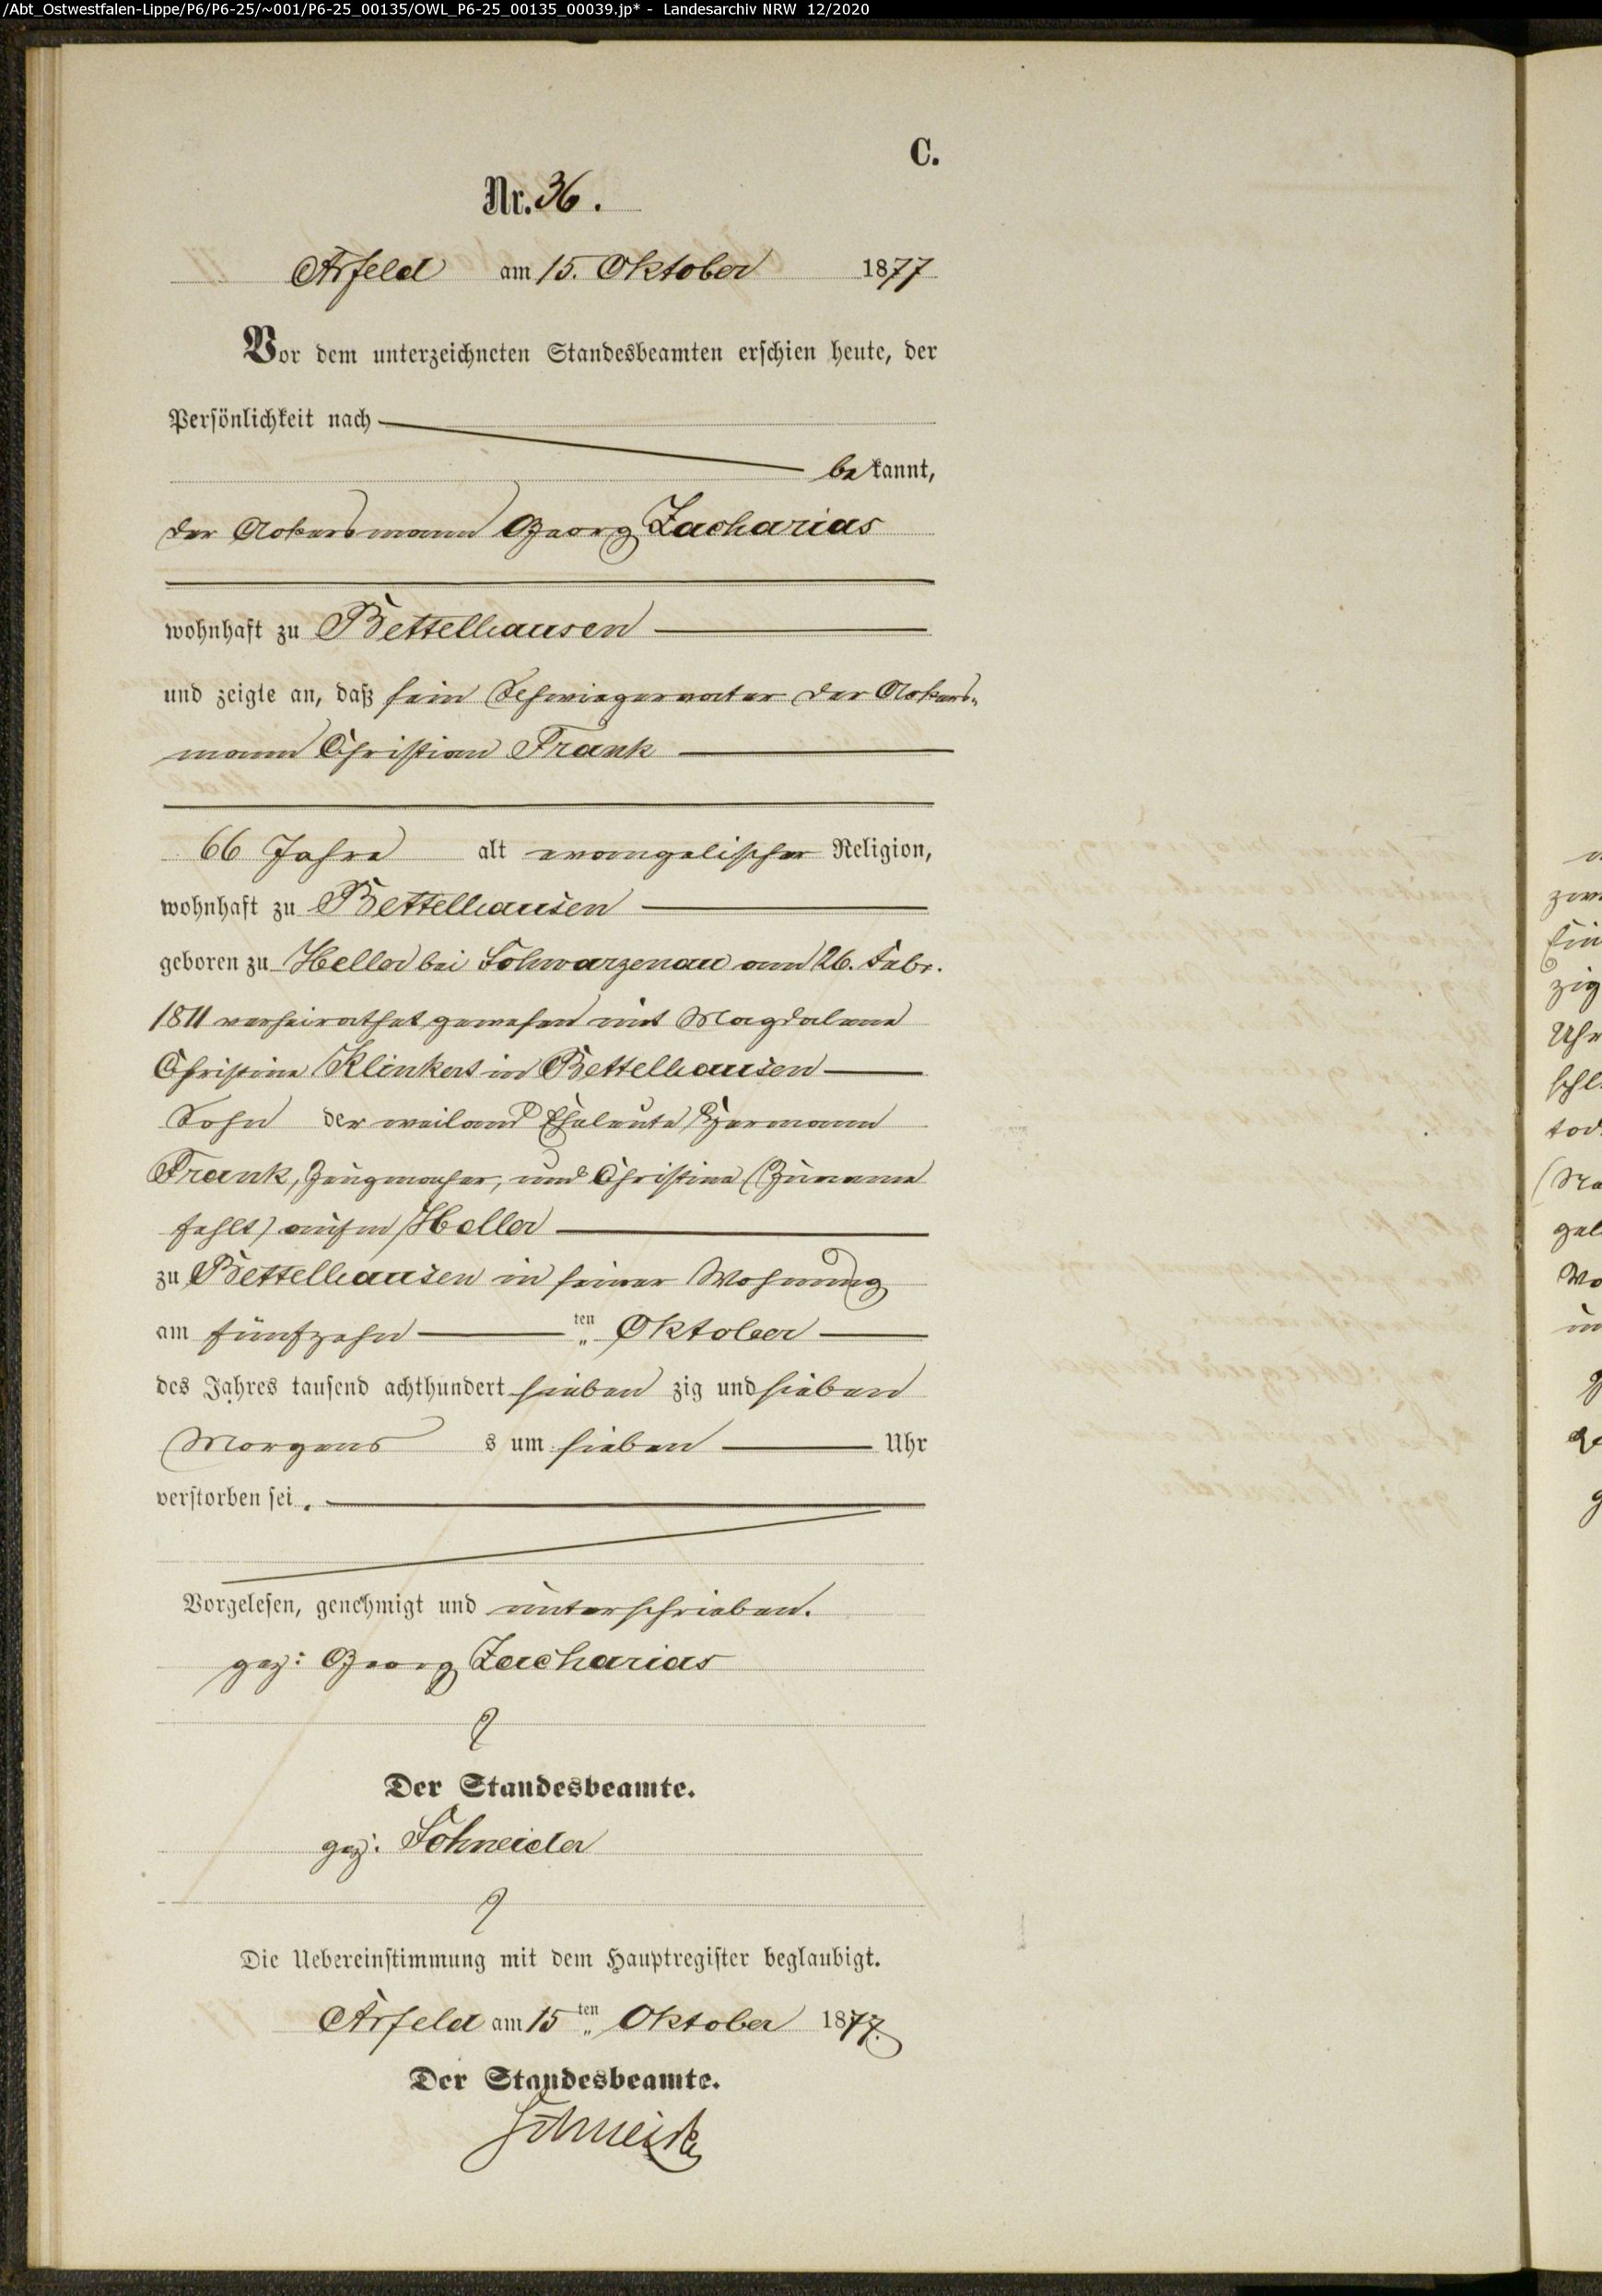 /Abt_Ostwestfalen-Lippe/P6/P6-25/~001/P6-25_00135/OWL_P6-25_00135_00039.jp* - Landesarchiv NRW 12/2020
C.
Nr. 36.
Arfeld am 15. Oktober 1877
Vor dem unterzeichneten Standesbeamten erschien heute, der
Persönlichkeit nach
bekannt,
der Ackersmann Georg Zacharias
wohnhaft zu Bettelhausen
und zeigte an, daß sein Schwiegervater der Ackers-
mann Christian Frank
66 Jahre alt evangelischer Religion,
wohnhaft zu Bettelhausen
geboren zu Heller bei Schwarzenau am 26. Febr.
1811 verheirathet gewesen mit Magdalena
Christina Klinkert in Bettelhausen
Sohn der weiland Eheleute Hermann
Frank, Zeugmacher, und Christina (Zuname
fehlt) auf'm Heller
zu Bettelhausen in seiner Wohnung
am fünfzehn ten Oktober
des Jahres tausend achthundert sieben zig und sieben
Morgens s um sieben Uhr
verstorben sei.
Vorgelesen, genehmigt und unterschrieben.
gez: Georg Zacharias
Der Standesbeamte.
gez: Schneider
Die Uebereinstimmung mit dem Hauptregister beglaubigt.
Arfeld am 15 ten Oktober 1877.
Der Standesbeamte.
Schneider